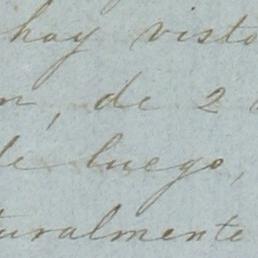 hay visto
, de 2
de luego,
turalmente